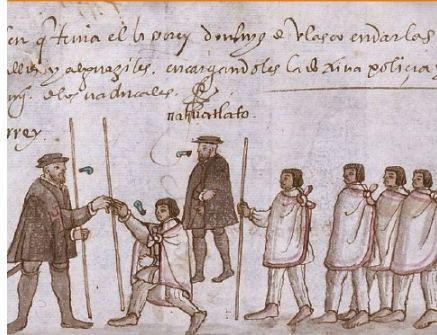 en q̃ tenia el bisorey don luys de Velasco en dar las
y alguaziles. encargandoles la
de los naturales.
nahuatlato.
rrey.